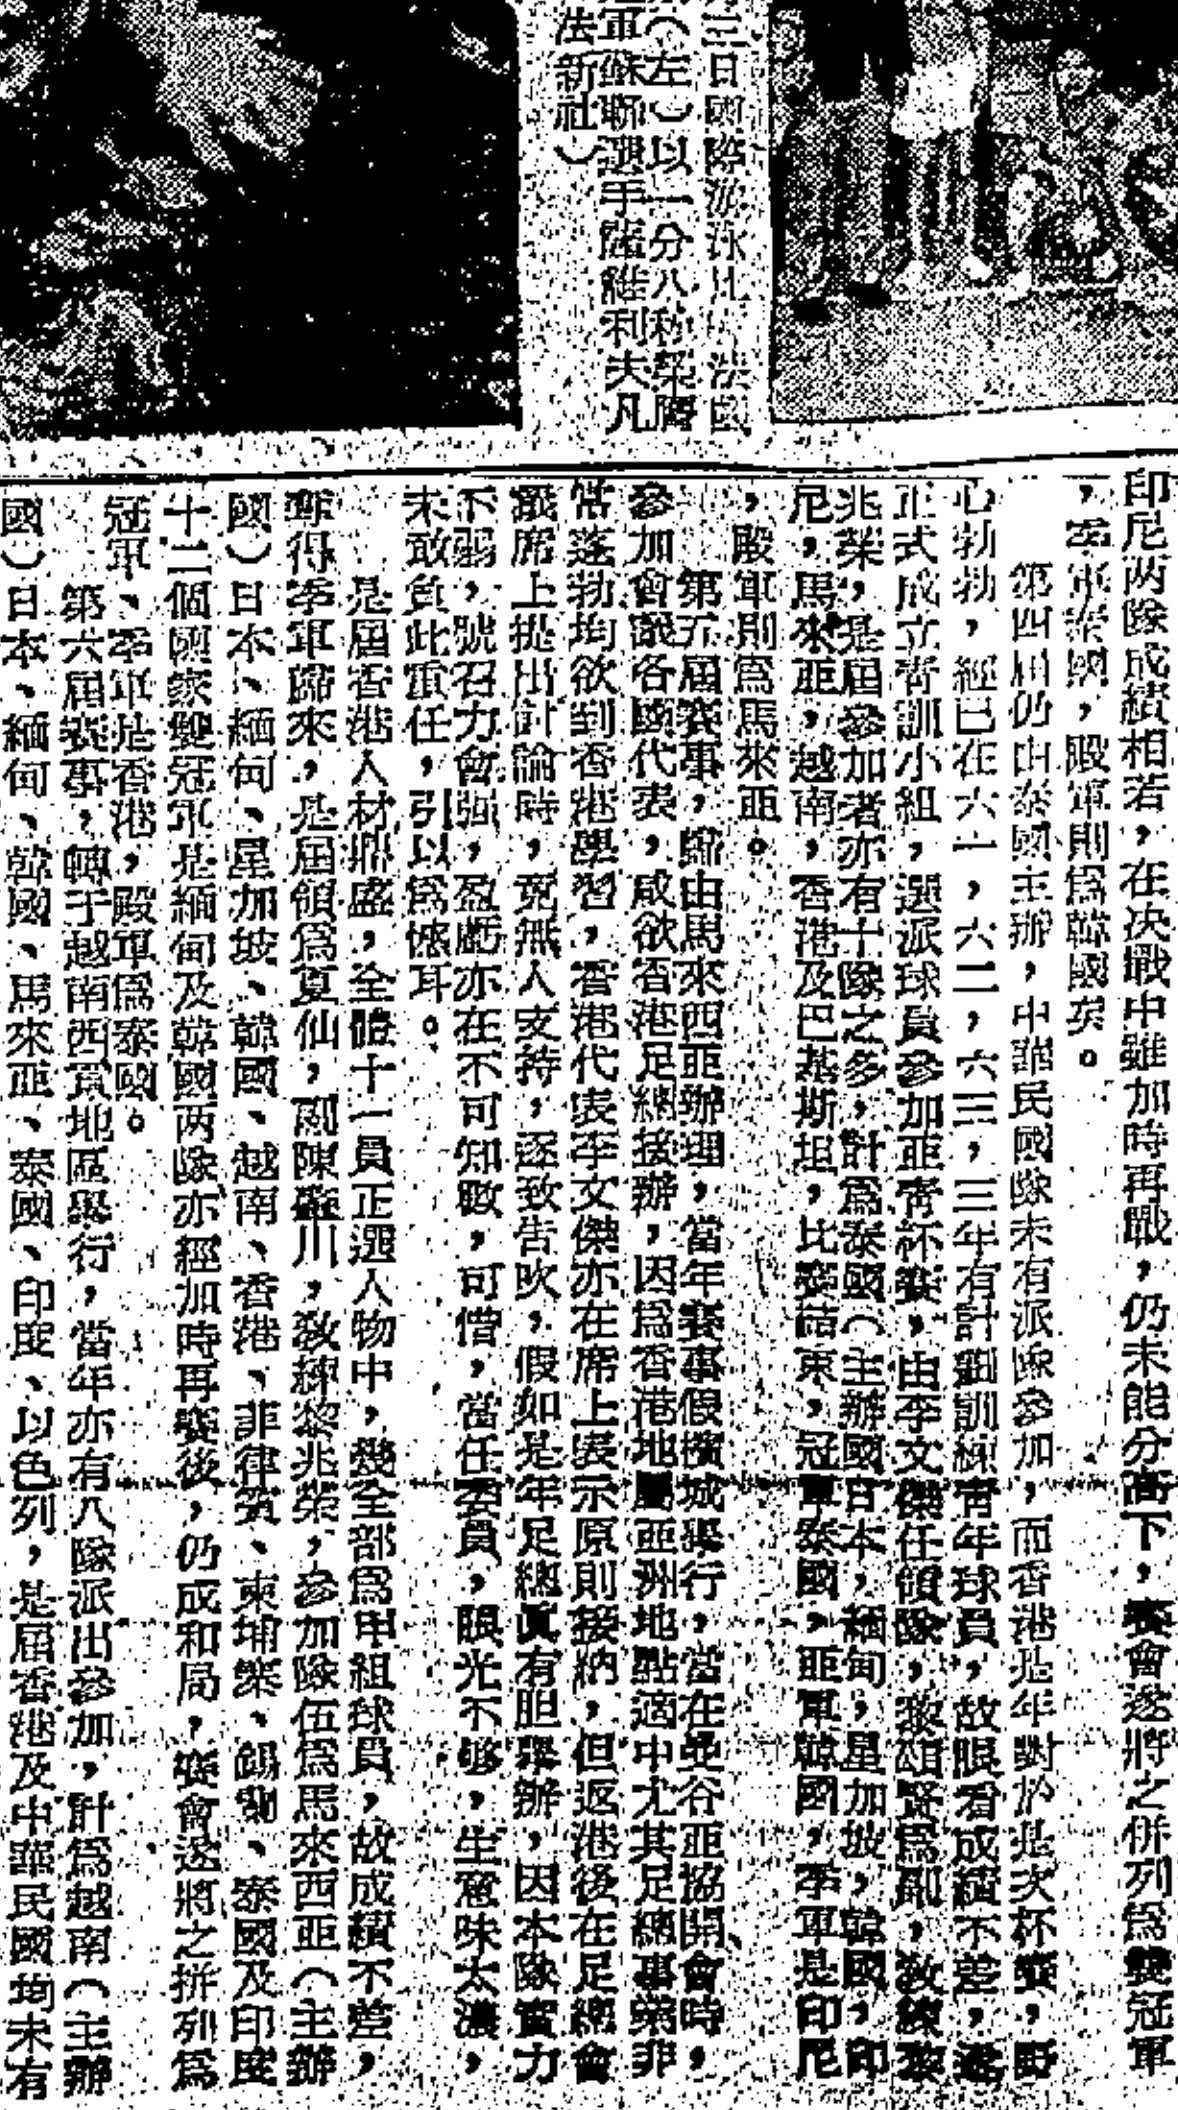 三日國際游泳比 法國
（左）以一分八秒榮膺
軍蘇聯選手 維利夫凡
法新社）
印尼两隊成績相若，在决戰中雖加時再戰，仍未能分高下，賽會遂將之併列爲雙冠軍
，季軍泰國，殿軍則爲韓國矣。
第四届仍由泰國主辦，中華民國隊未有派隊參加，而香港是年對於是次杯賽，野
心勃勃，經已在六一，六二，六三，三年有計劃訓練青年球員，故眼看成績不差，遂
正式成立青訓小組，選派球員參加亞青杯賽，由李文傑任領隊，黎 賢爲副，敎練黎
兆榮，是屆參加者亦有十隊之多，計爲泰國（主辦國日本，緬甸，星加坡，韓國，印
尼，馬來亞，越南，香港及巴基斯坦，比賽結束，冠軍泰國，亜軍韓國，季軍是印尼
，殿軍則爲馬來亞。
第五屆賽事，歸由馬來西亞辦理，當年賽事假檳城舉行，當在曼谷亚協開會時，
參加會議各國代表，咸欲香港足總接辦，因爲香港地屬亚洲地點適中尤其足總事業非
常蓬勃均欲到香港學習，香港代表李文傑亦在席上表示原則接納，但返港後在足總會
議席上提出討論時，竟無人支持，逐致告吹，假如是年足總眞有胆舉辦，因本隊實力
不弱，號召力會强，盈虧亦在不可知數，可惜，當任委員，眼光不够，生意味太濃，
未敢負此重任，引以爲憾耳。
是屆香港人材鼎盛，全體十一員正選人物中，幾全部爲甲組球員，故成績不差，
奪得季軍歸來，是屆領爲夏仙，副陳 川，敎練黎兆榮，參加隊伍爲馬來西亞（主辦
國）日本、緬甸、星加坡、韓國、越南、香港、菲律賓、柬埔寨、錫蘭、泰國及印度
十二個國家雙冠軍是緬甸及韓國两隊亦經加時再賽後，仍成和局，賽會遂將之拼列爲
冠軍、季軍是香港，殿軍爲泰國。
第六屆賽事，轉于越南西貢地區舉行，當年亦有八隊派出參加，計爲越南（主辦
國）日本、緬甸、韓國、馬來亞、泰國、印度、以色列，是屆香港及中華民國均未有